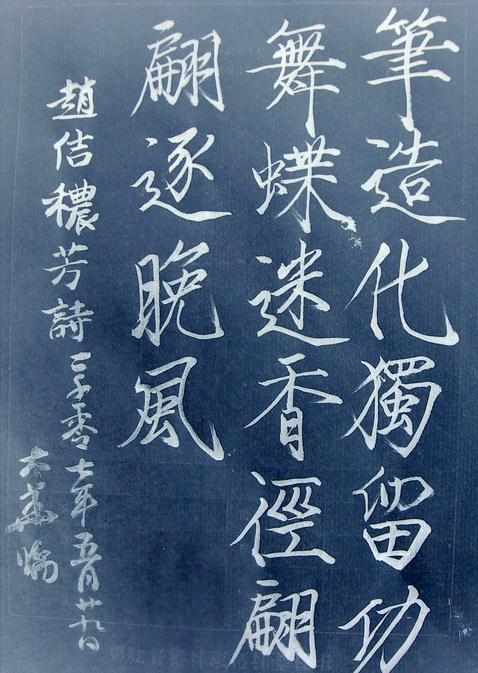 筆造化獨留功
舞蝶迷香徑翩
翩逐晚風
趙佶穠芳詩二千零七年五月廿九日
臨